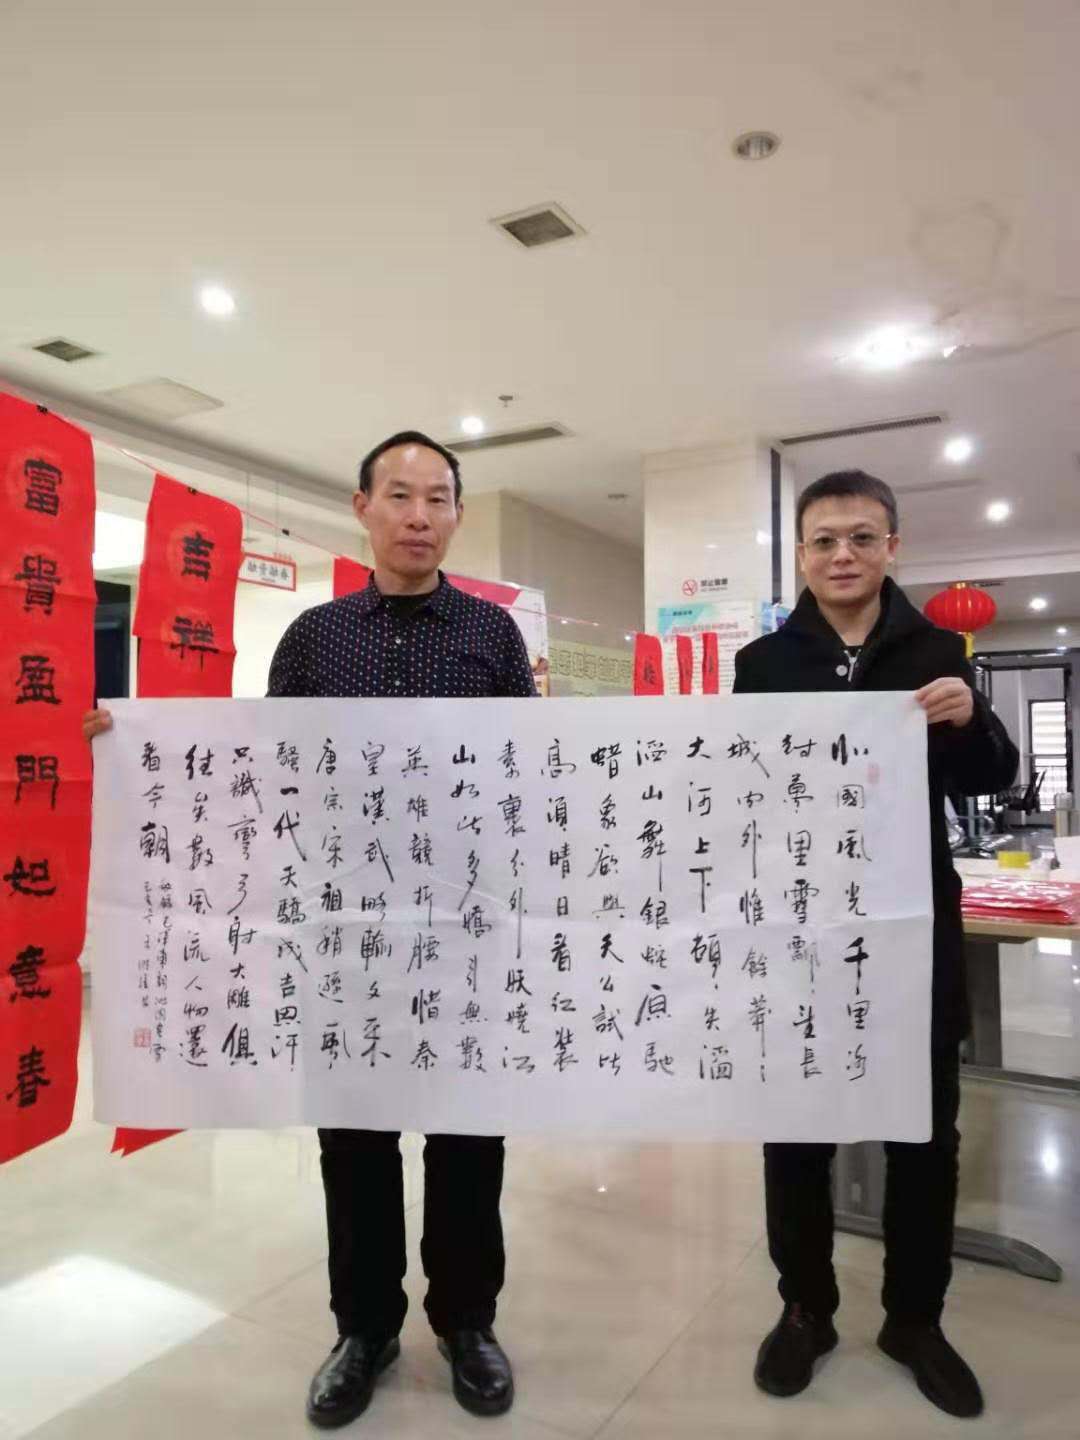 富貴盈門如意春
吉祥
禁止吸烟
北國風光千里冰
封萬里雪飄望長
城内外惟餘莽莽
大河上下頓失滔
滔山舞銀蛇原馳
蜡象欲與天公試比
高須晴日看红裝
素裹分外妖嬈江
山如此多嬌引無數
英雄競折腰惜秦
皇漢武略輸文采
唐宗宋祖稍遜風
騷一代天驕成吉思汗
只識彎弓射大雕俱
往矣數風流人物還
看今朝
敬録毛澤東詞沁園春雪